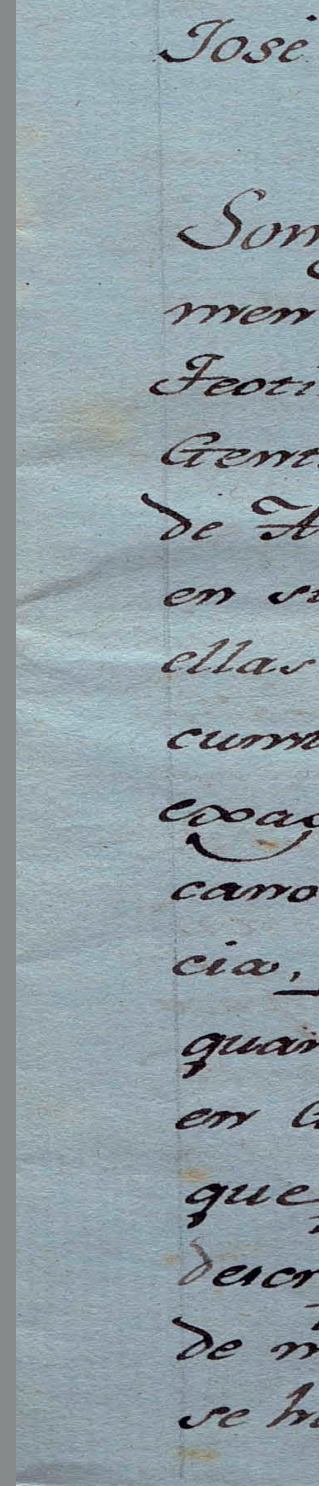 José
Som
men
Feoti
Gent
de A
en su
ellas
cum
exac
cano
cia,
quan
en G
que
descr
de m
se ha